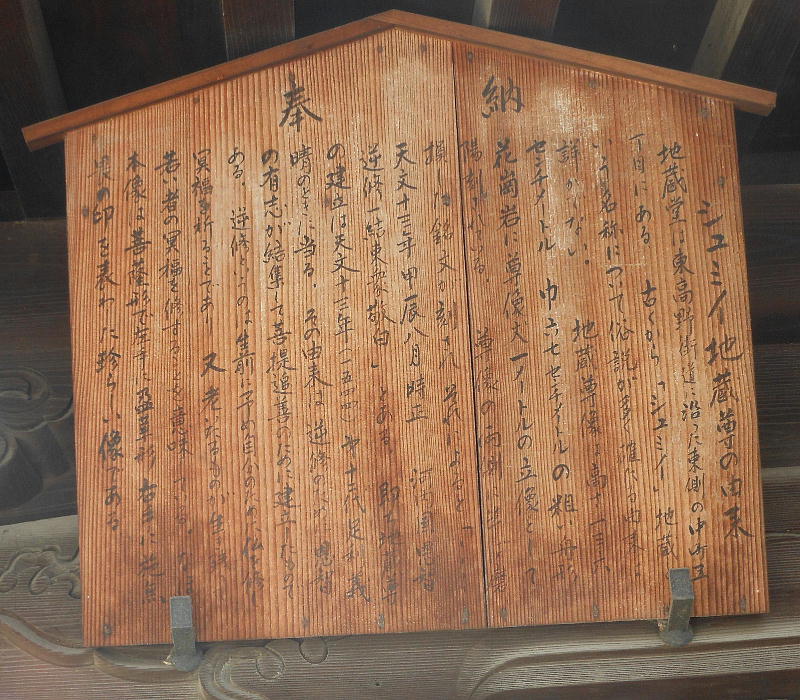 奉納
シュミイ地蔵尊の由来
地蔵堂は東高野街道に沿った東側の中町五
丁目にある。古くから「シュミイ」地蔵
いう名称について俗説が多く確たる由来は
詳かでない。地蔵尊像は高さ一
センチメートル 巾六七センチメートルの粗い舟形
花崗岩に尊像丈一メートルの立像として
陽刻されている。尊像の両側に
損した銘文が刻まれそれによると「
天文十三年甲辰八月時正 河内国思智
逆修一結衆敬白」とある。即ち地蔵尊
の建立は天文十三年(一五四四)第十二代足利義
時のときに当る。その由来は逆修のため思智
の有志が結集して菩提追善のために建立したもので
ある。逆修というのは生前に予め自分のために仏を修し
冥福を祈ることであり又老いたるものが生
若い者の冥福を修することを意味している。
本像は菩薩形で左手に 右手に施無
畏の印を表わした珍らしい像である